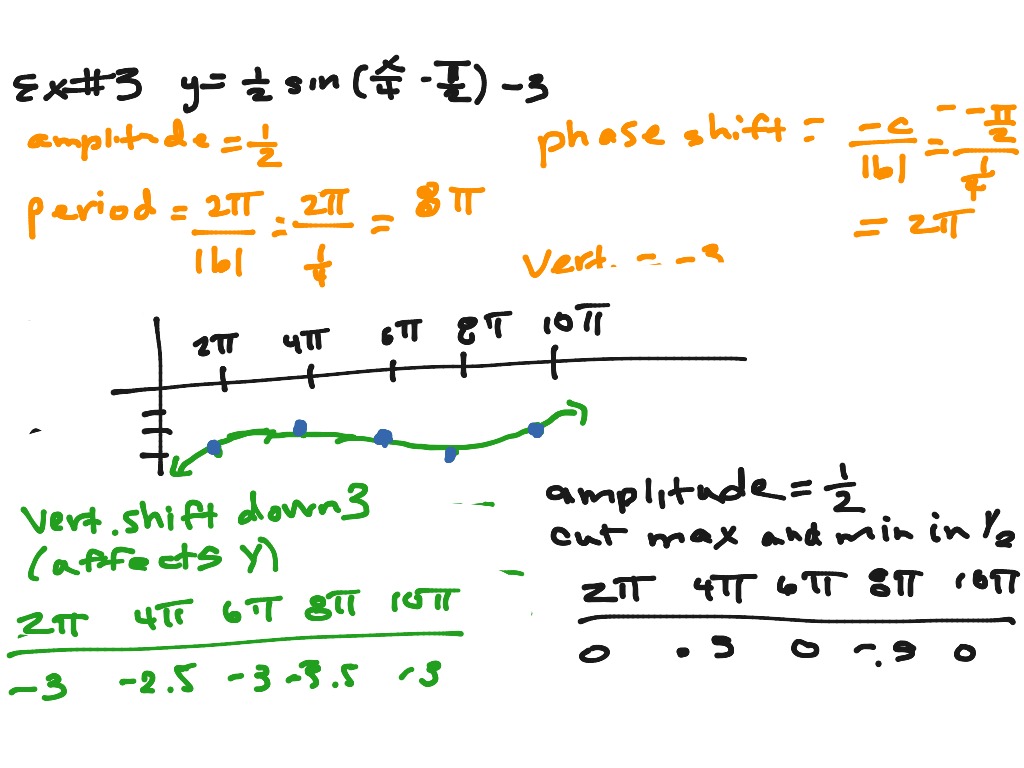 Ex#3 y= 1/2 sin (x/4 - π/2) -3
amplitude = 1/2
phase shift = -c/|b| = - -π/2 / 1/4
period = 2π/|b| = 2π / 1/4 = 8π
= 2π
Vert. = -3
2π 4π 6π 8π 10π
Vert. shift down 3
(affects Y)
2π 4π 6π 8π 10π
-3 -2.5 -3 -3.5 -3
amplitude = 1/2
cut max and min in 1/2
2π 4π 6π 8π 10π
0 .5 0 -.5 0